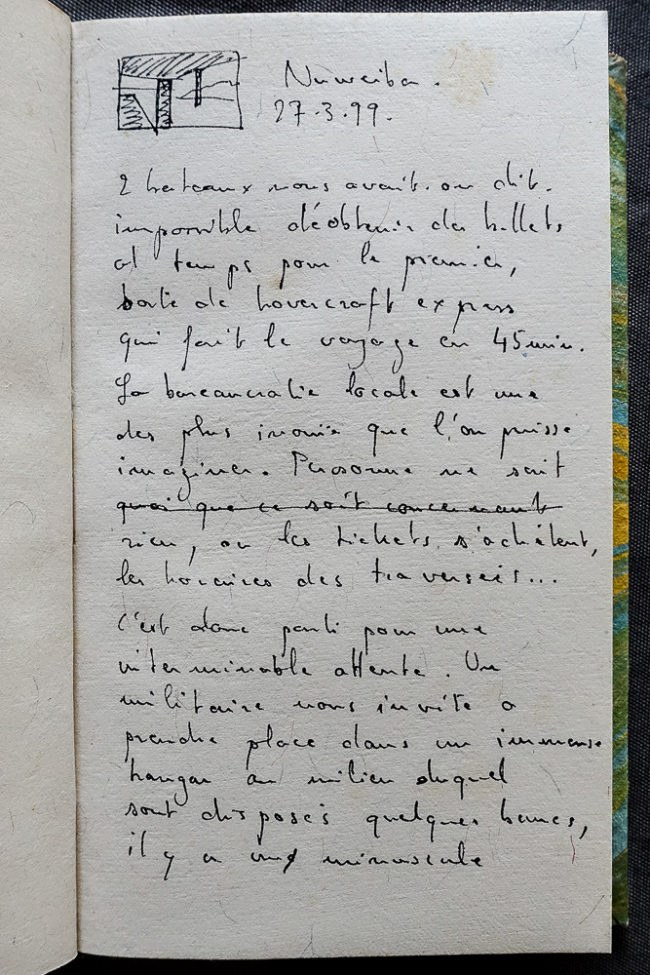 Nuweiba.
27.3.99.
2 bateaux nous avait-on dit.
impossible d'obtenir des billets
à temps pour le premier,
sorte de hovercraft express
qui fait le voyage en 45 min.
La bureaucratie locale est une
des plus inouïe que l'on puisse
imaginer. Personne ne sait
quoi que ce soit concernant
rien, où les tickets s'achètent,
les horaires des traversées...
C'est donc parti pour une
interminable attente. Un
militaire nous invite a
prendre place dans un immense
hangar au milieu duquel
sont disposés quelques bancs,
il y a une minuscule